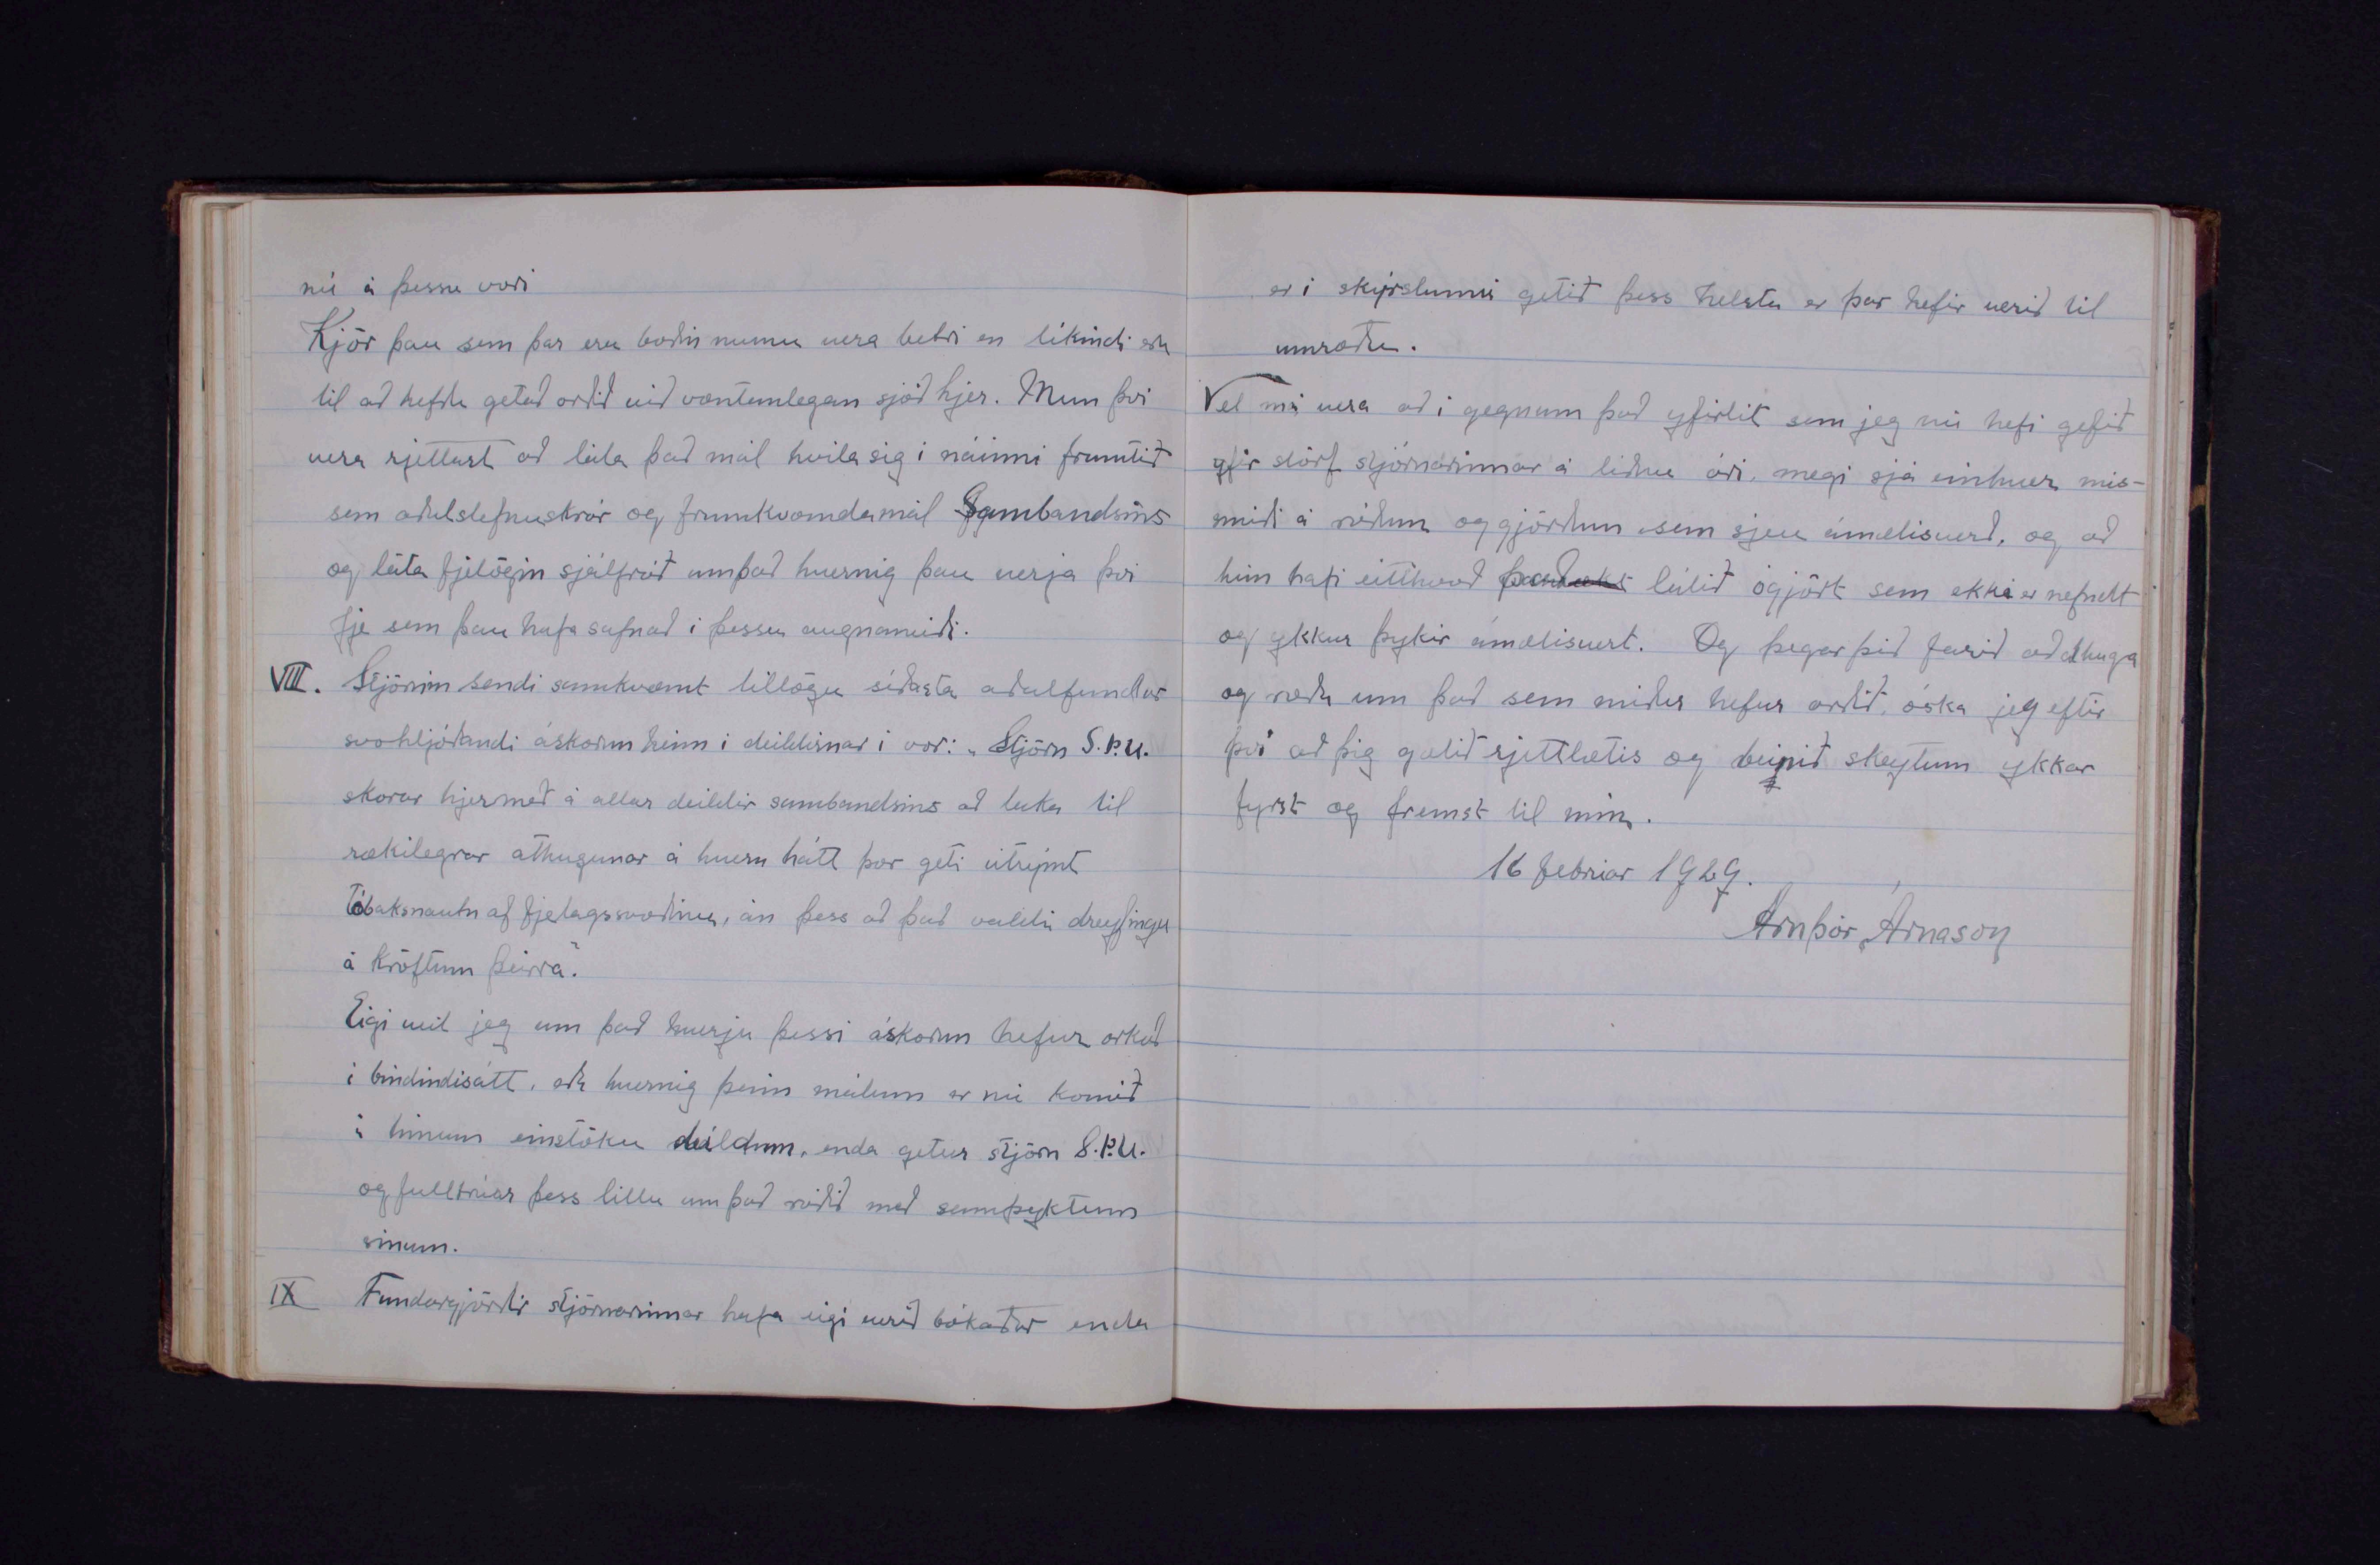 nú á þessu vori
Kjör þau sem þar eru boðin munu vera betri en líkindi eru
til að hefðu getað orðið við væntanlegan sjóð hjer. Mun því
vera rjettast að láta það mál hvíla sig í náinni framtíð
sem aðalstefnuskrár og framkvæmdamál Sambandsins
og láta fjelögin sjálfráð um það hvernig þau verja því
fje sem þau hafa safnað í þessu augnamiði.
VIII. Stjórnin sendi samkvæmt tillögu síðasta aðalfundar
svohljóðandi áskorun heim í deildirnar í vor: „Stjórn S.Þ.U.
skorar hjermeð á allar deildir sambandsins að taka til
rækilegrar athugunar á hvern hátt þær geti útrýmt
Tóbaksnautn af fjelagssvæðinu, án þess að það valdi dreyfingu
á kröftum þeirra".
Eigi veit jeg um það hverju þessi áskorun hefur orkað
í bindindisátt, eða hvernig þeim málum er nú komið
í hinum einstöku deildum, enda getur stjórn S.Þ.U.
og fulltrúar þess litlu um það ráðið með samþyktum
sínum.
IX Fundargjörðir stjórnarinnar hafa eigi verið bókaðar enda
er í skýrslunni getið þess helsta er þar hefir verið til
umræðu.
Vel má vera að í gegnum það yfirlit sem jeg nú hefi gefið
yfir störf stjórnarinnar á liðnu ári, megi sjá einhver mis-
smíði á ráðum og gjörðum sem sjeu ámælisverð, og að
hún hafi eitthvað látið ógjört sem ekki er nefndt
og ykkur þykir ámælisvert. Og þegar þið farið að athuga
og ræða um það sem miður hefur orðið, óska jeg eftir
því að þig gætið rjettlætis og beinið skeytum ykkar
fyrst og fremst til mín.
16 febrúar 1929.
Arnþór Árnason